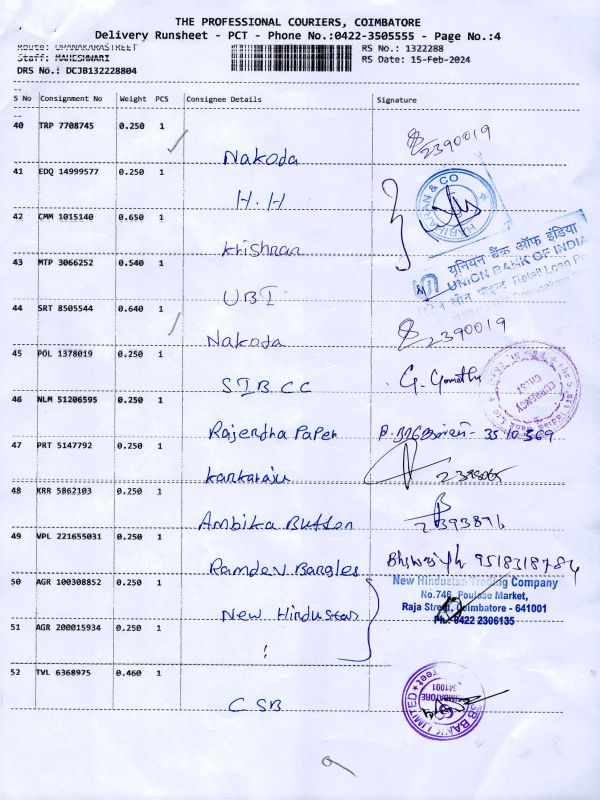 THE PROFESSIONAL COURIERS, COIMBATORE
Delivery Runsheet - PCT - Phone No.:0422-3505555 - Page No.:4
Route: OPANAKARASTREET
RS No.: 1322288
Staff: MAHESHWARI
RS Date: 15-Feb-2024
DRS No.: DCJB132228804
S No Consignment No Weight PCS Consignee Details Signature
40 TRP 7708745 0.250 1 Nakoda 2390019
41 EDQ 14999577 0.250 1 H.H
HARIHARAN & CO
42 CMM 1015140 0.650 1 Krishnan
43 MTP 3066252 0.540 1 UBI
यूनियन बैंक ऑफ इंडिया
UNION BANK OF INDIA
Retail Loan
44 SRT 8505544 0.640 1 Nakoda 2390019
45 POL 1378019 0.250 1 S.I.B.C.C G. Gomathy
CURRENCY CHEST
46 NLM 51206595 0.250 1 Rajendra Paper
47 PRT 5147792 0.250 1 Kankaraju
48 KRR 5862103 0.250 1 Ambika Button
49 VPL 221655031 0.250 1 Ramdev Bangles 9518318784
50 AGR 100308852 0.250 1 New Hindustan
New Hindustan Trading Company
No.746, Poulose Market,
Raja Street, Coimbatore - 641001
Ph: 0422 2306135
51 AGR 200015934 0.250 1
52 TVL 6368975 0.460 1 CSB
COIMBATORE
641001